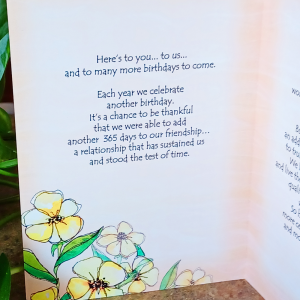 Here's to you... to us...
and to many more birthdays to come.
Each year we celebrate
another birthday.
It's a chance to be thankful
that we were able to add
another 365 days to our friendship...
a relationship that has sustained us
and stood the test of time.